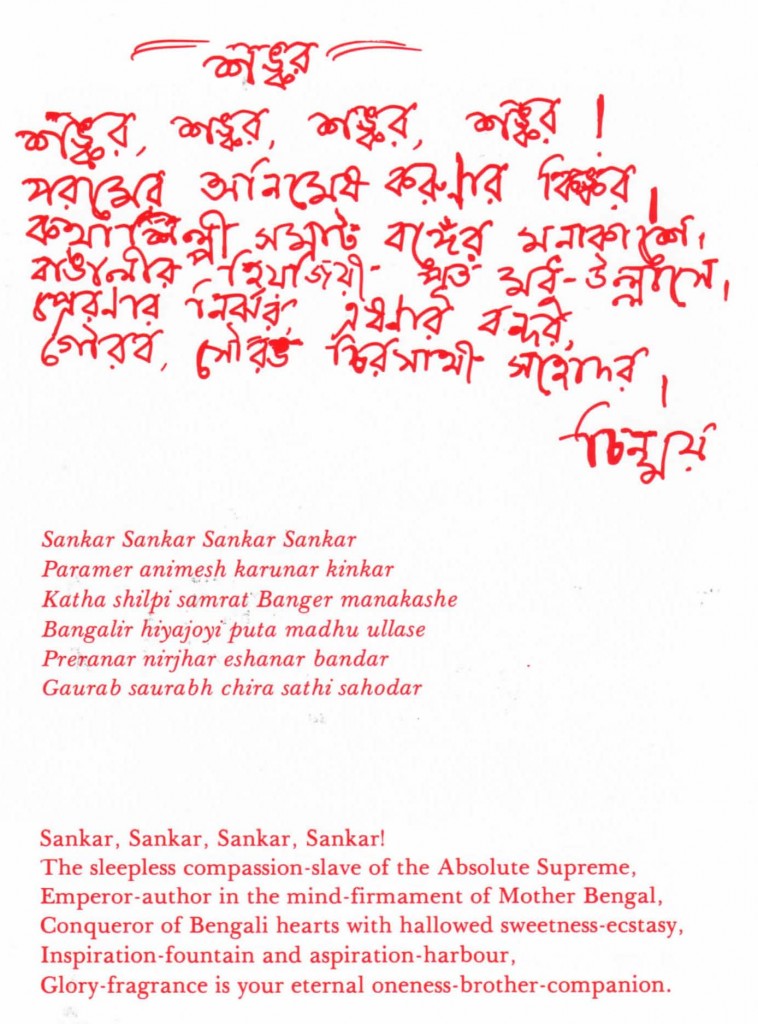 শঙ্কর
শঙ্কর, শঙ্কর, শঙ্কর, শঙ্কর !
পরমের অনিমেষ করুণার কিঙ্কর।
কথাশিল্পী সম্রাট বঙ্গের মনাকাশে,
বাঙালীর হিয়াজয়ী পূত মধু-উল্লাসে,
প্রেরণার নির্ঝর, এষণার বন্দর,
গৌরব, সৌরভ চিরসাথী সহোদর।
চিন্ময়
Sankar Sankar Sankar Sankar
Paramer animesh karunar kinkar
Katha shilpi samrat Banger manakashe
Bangalir hiyajoyi puta madhu ullase
Preranar nirjhar eshanar bandar
Gaurab saurabh chira sathi sahodar
Sankar, Sankar, Sankar, Sankar!
The sleepless compassion-slave of the Absolute Supreme,
Emperor-author in the mind-firmament of Mother Bengal,
Conqueror of Bengali hearts with hallowed sweetness-ecstasy,
Inspiration-fountain and aspiration-harbour,
Glory-fragrance is your eternal oneness-brother-companion.